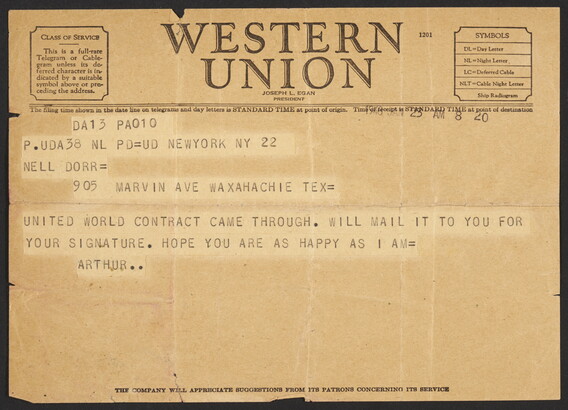 CLASS OF SERVICE
This is a full-rate
Telegram or Cable-
gram unless its de-
ferred character is in-
dicated by a suitable
symbol above or pre-
ceding the address.
WESTERN
UNION
JOSEPH L. EGAN
PRESIDENT
1201
SYMBOLS
DL=Day Letter
NL=Night Letter
LC=Deferred Cable
NLT=Cable Night Letter
Ship Radiogram
The filing time shown in the date line on telegrams and day letters is STANDARD TIME at point of origin. Time of receipt is STANDARD TIME at point of destination
23 AM 8 20
DA13 PA010
P.UDA38 NL PD=UD NEWYORK NY 22
NELL DORR=
905 MARVIN AVE WAXAHACHIE TEX=
UNITED WORLD CONTRACT CAME THROUGH. WILL MAIL IT TO YOU FOR
YOUR SIGNATURE. HOPE YOU ARE AS HAPPY AS I AM=
ARTHUR..
THE COMPANY WILL APPRECIATE SUGGESTIONS FROM ITS PATRONS CONCERNING ITS SERVICE